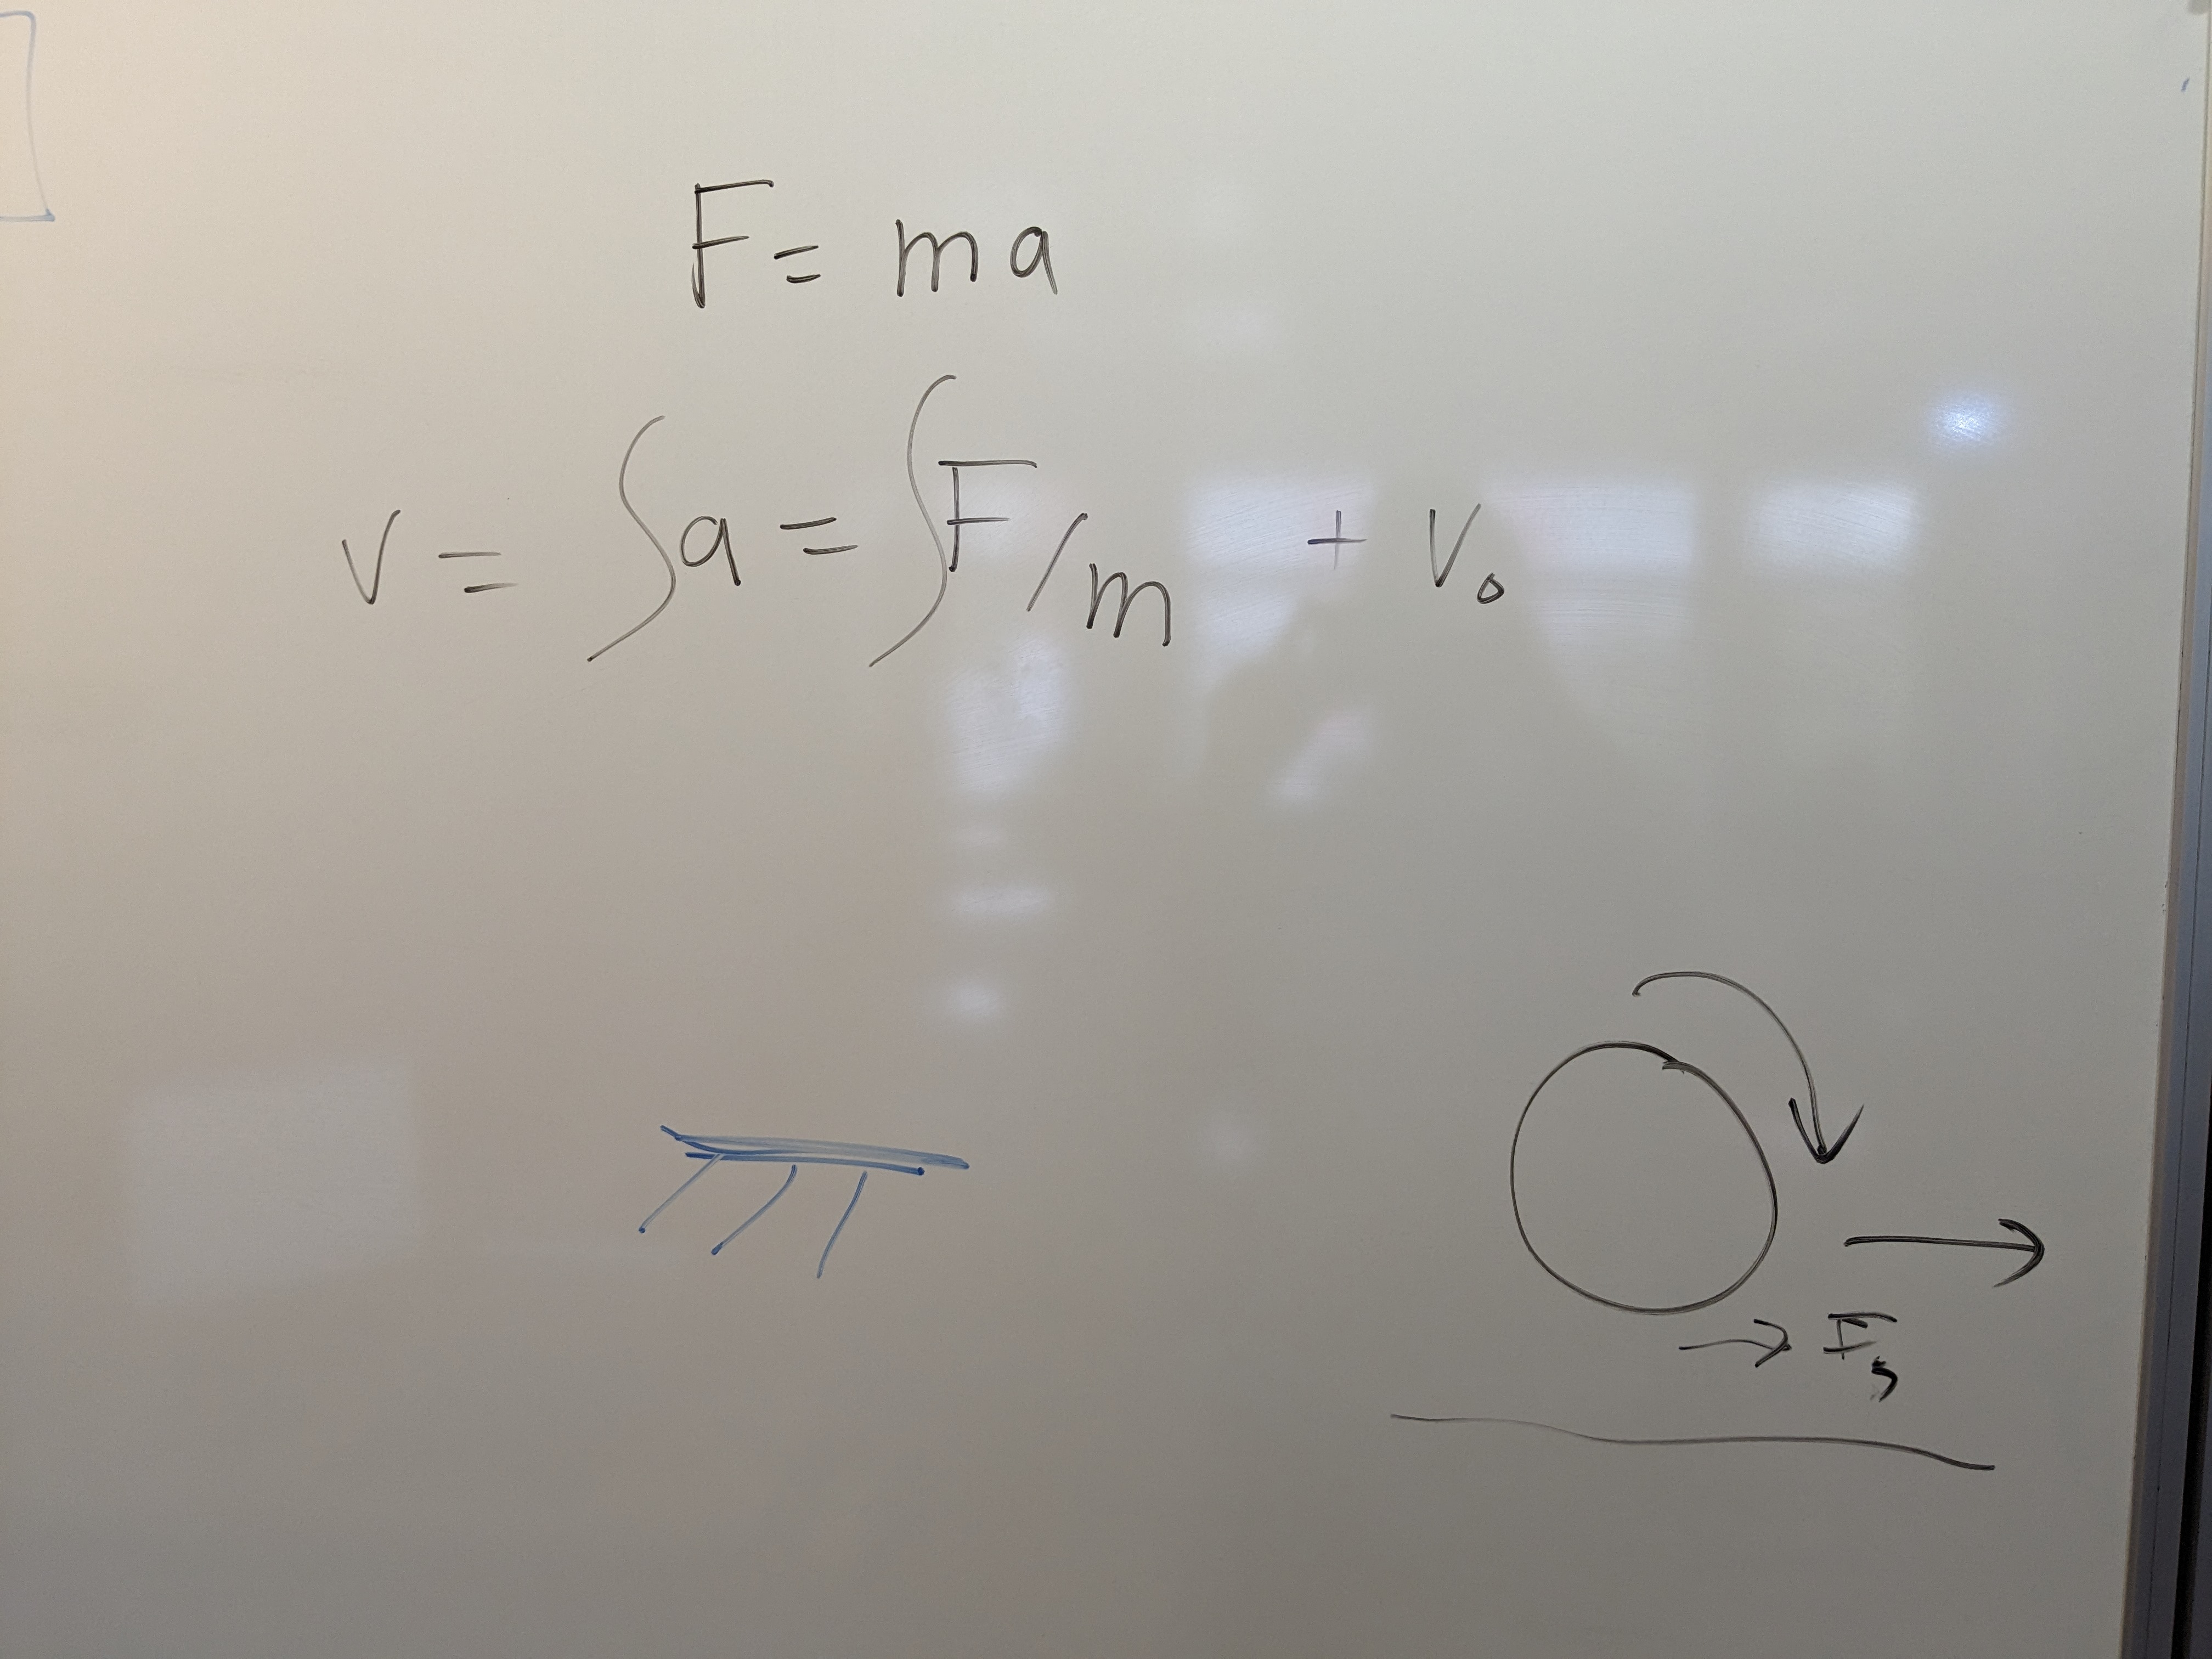 F = ma
v = ∫a = ∫F/m + v₀
F₅